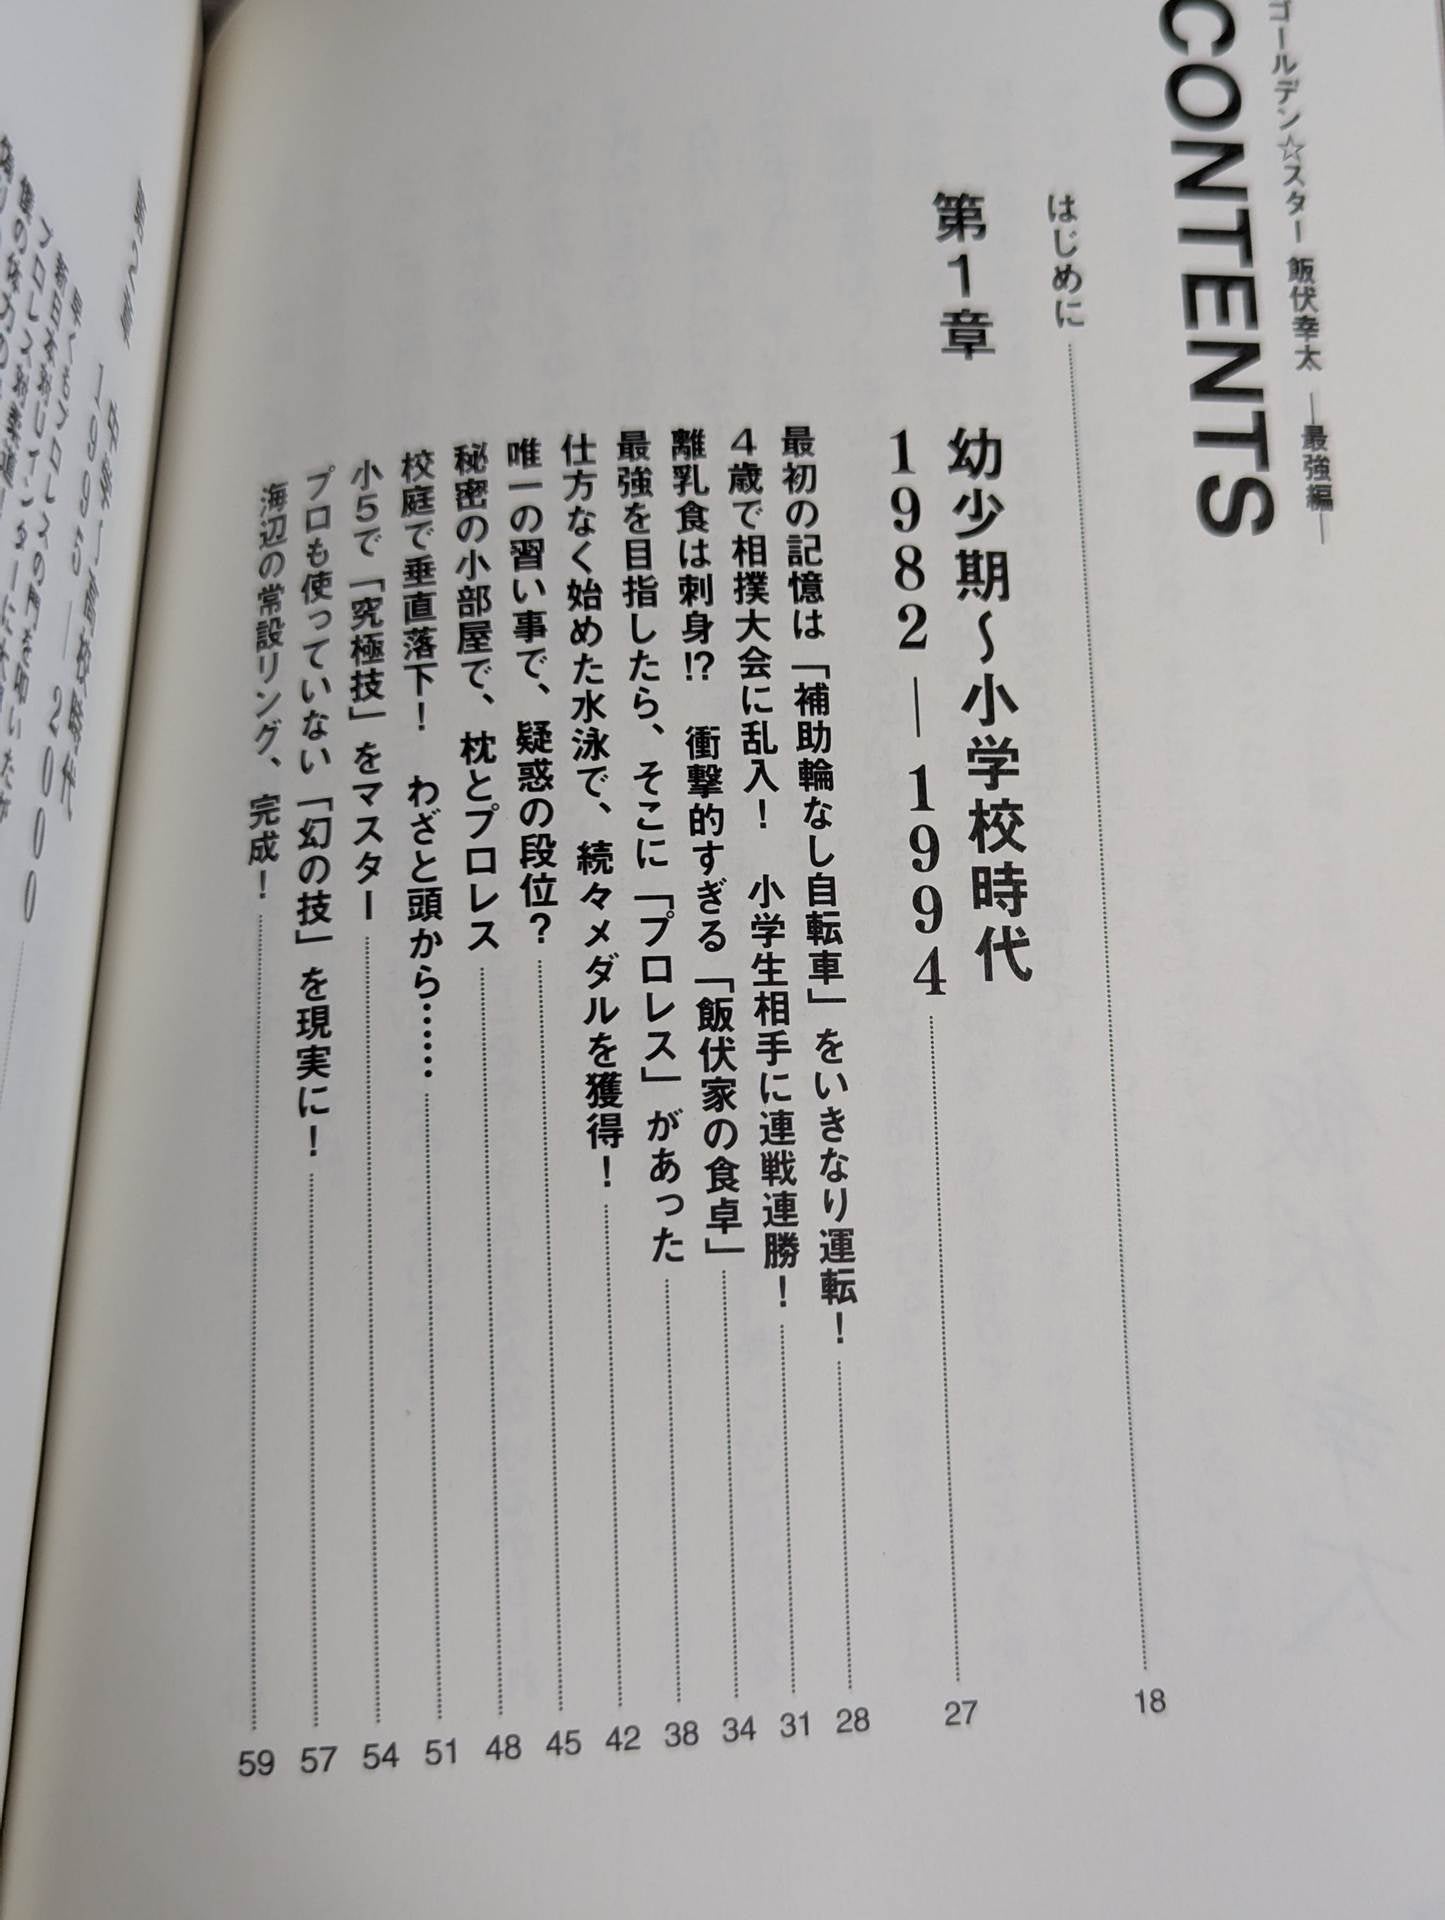 ゴールデン☆スター 飯伏幸太 ―最強編―
CONTENTS
はじめに 18
第1章 幼少期〜小学校時代
1982―1994 27
最初の記憶は「補助輪なし自転車」をいきなり運転！ 28
4歳で相撲大会に乱入！ 小学生相手に連戦連勝！ 31
離乳食は刺身!? 衝撃的すぎる「飯伏家の食卓」 34
最強を目指したら、そこに「プロレス」があった 38
仕方なく始めた水泳で、続々メダルを獲得！ 42
唯一の習い事で、疑惑の段位？ 45
秘密の小部屋で、枕とプロレス 48
校庭で垂直落下！ わざと頭から…… 51
小5で「究極技」をマスター 54
プロも使っていない「幻の技」を現実に！ 57
海辺の常設リング、完成！ 59
第2章 中学〜高校時代
1995―2000